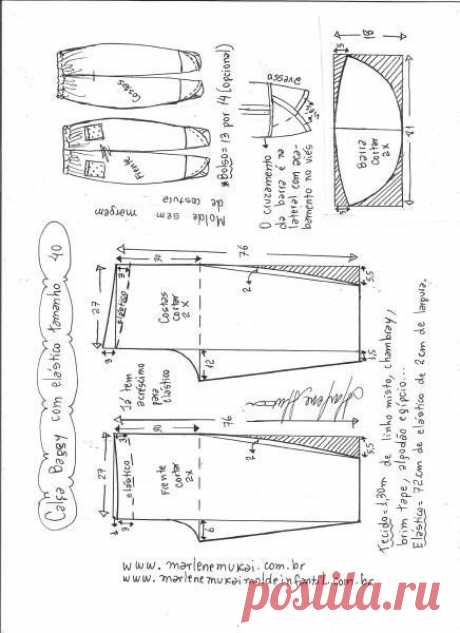 Calça Baggy com elástico tamanho 40
Molde sem
margem
de costura
Costas
Frente
*Bolso = 13 por 14 (opcional)
avesso
viés
O cruzamento
da barra é na
lateral com aca-
bamento no viés
18
5
Barra
cortar
2x
18
5
76
30
27
3
elástico
3
Costas
cortar
2x
2
5,5
12
1,5
Já tem
acréscimo
para
elástico
Marlene Mukai
76
30
27
3
elástico
3
Frente
cortar
2x
2
5,5
6
Tecido = 1,30m de linho misto, chambray,
brim tape, algodão egípcio...
Elástico = 72cm de elástico de 2cm de largura.
www.marlenemukai.com.br
www.marlenemukaimoldeinfantil.com.br
postila.ru